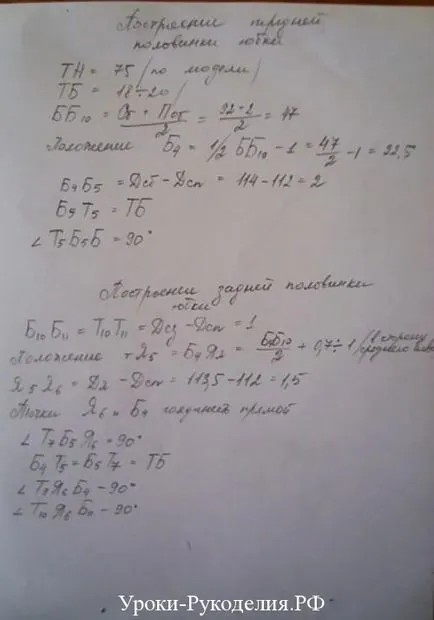 Построение передней
половинки юбки
ТН = 75 /по модели/
ТБ = 18÷20/
ББ₁₀ = Сб + Поб / 2 = 92+2 / 2 = 47
Положение Б₄ = 1/2 ББ₁₀ - 1 = 47/2 - 1 = 22,5
Б₄Б₅ = Дсб - Дсп = 114 - 112 = 2
Б₅Т₅ = ТБ
∠ Т₅Б₅Б = 90°
Построение задней половинки
юбки
Б₁₀Б₁₁ = Т₁₀Т₁₁ = Дсз - Дсп = 1
Положение т Я₅ = Б₄Я₂ = ББ₁₀/2 + 0,7÷1 /в сторону
среднего
Я₅Я₆ = Дя - Дсп = 113,5 - 112 = 1,5
Точки Я₆ и Б₄ соединить прямой
∠ Т₇Б₅Я₆ = 90°
Б₄Т₅ = Б₅Т₇ = ТБ
∠ Т₈Я₆Б₄ - 90°
∠ Т₁₀Я₆Б₁₁ - 90°
Уроки-Рукоделия.РФ